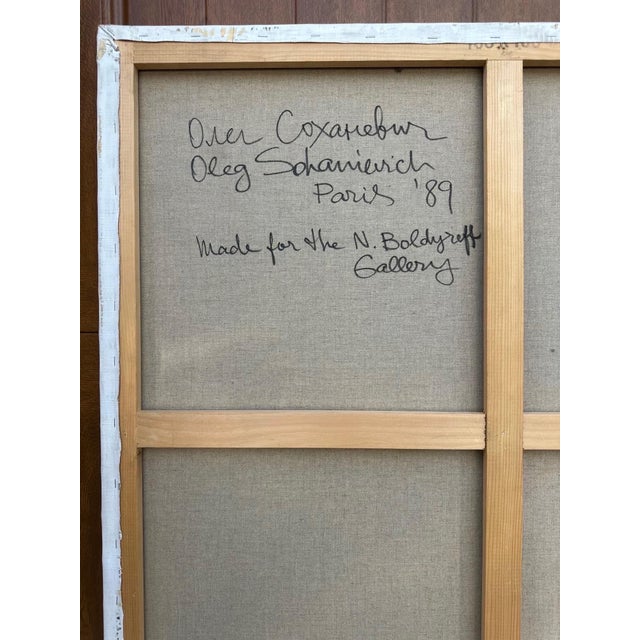 Олег Соханевич
Oleg Sohanievich
Paris '89
Made for the N. Boldyreff
Gallery